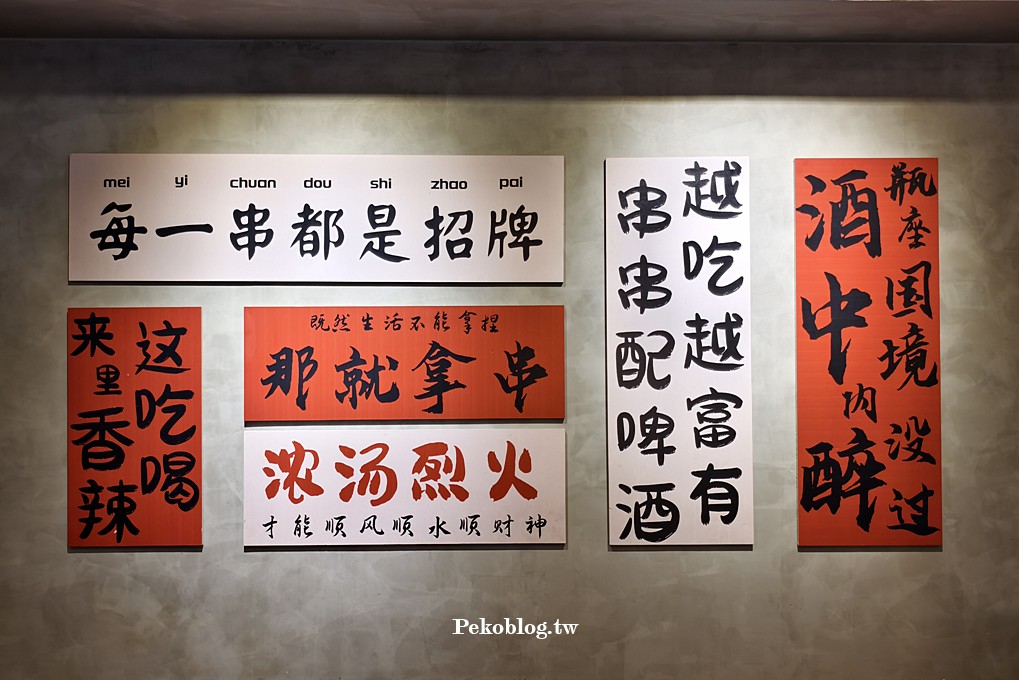 mei yi chuan dou shi zhao pai
每一串都是招牌
来这里吃香喝辣
既然生活不能拿捏
那就拿串
浓汤烈火
才能顺风顺水顺财神
越吃越富有
串串配啤酒
酒瓶座中国境内没醉过
Pekoblog.tw